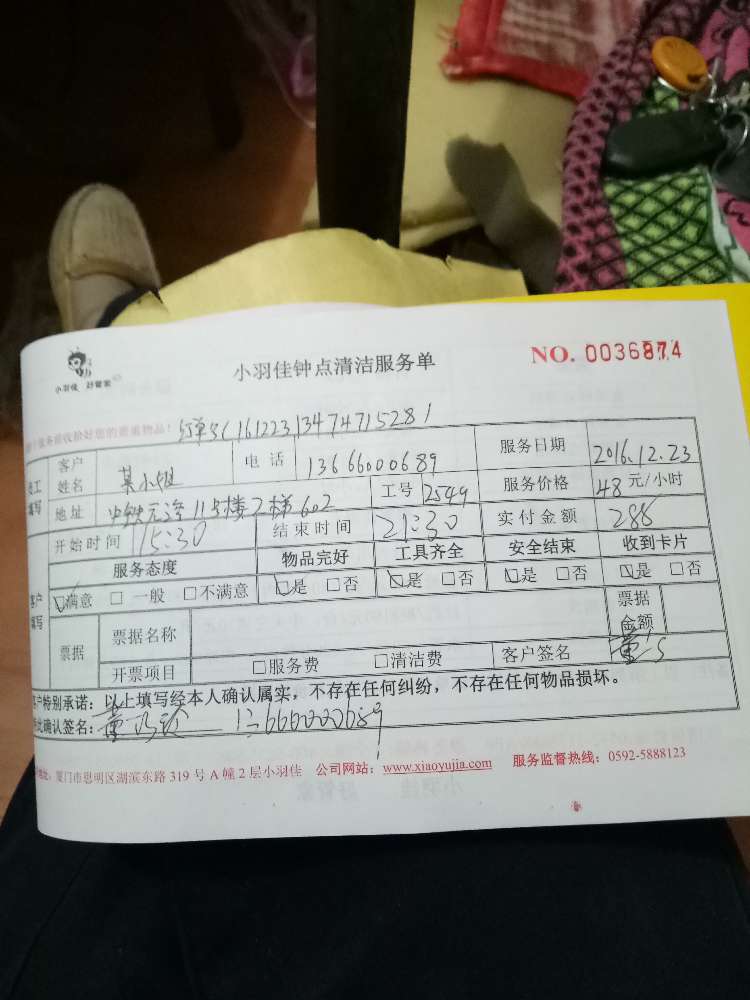 小羽佳 好管家
小羽佳钟点清洁服务单
NO. 0036874
服务前收拾好您的贵重物品!
订单号(16122313474715281
客户姓名 某小姐 电话 13666000689 服务日期 2016.12.23
地址 中铁元湾11号楼2梯602 工号 2549 服务价格 48元/小时
开始时间 15:30 结束时间 21:30 实付金额 288
服务态度 物品完好 工具齐全 安全结束 收到卡片
☑满意 □一般 □不满意 ☑是 □否 ☑是 □否 ☑是 □否 ☑是 □否
客户填写
票据 票据名称 票据金额
开票项目 □服务费 □清洁费 客户签名
客户特别承诺:以上填写经本人确认属实,不存在任何纠纷,不存在任何物品损坏。
确认签名: 13666000689
地址:厦门市思明区湖滨东路319号A幢2层小羽佳 公司网站:www.xiaoyujia.com 服务监督热线:0592-5888123